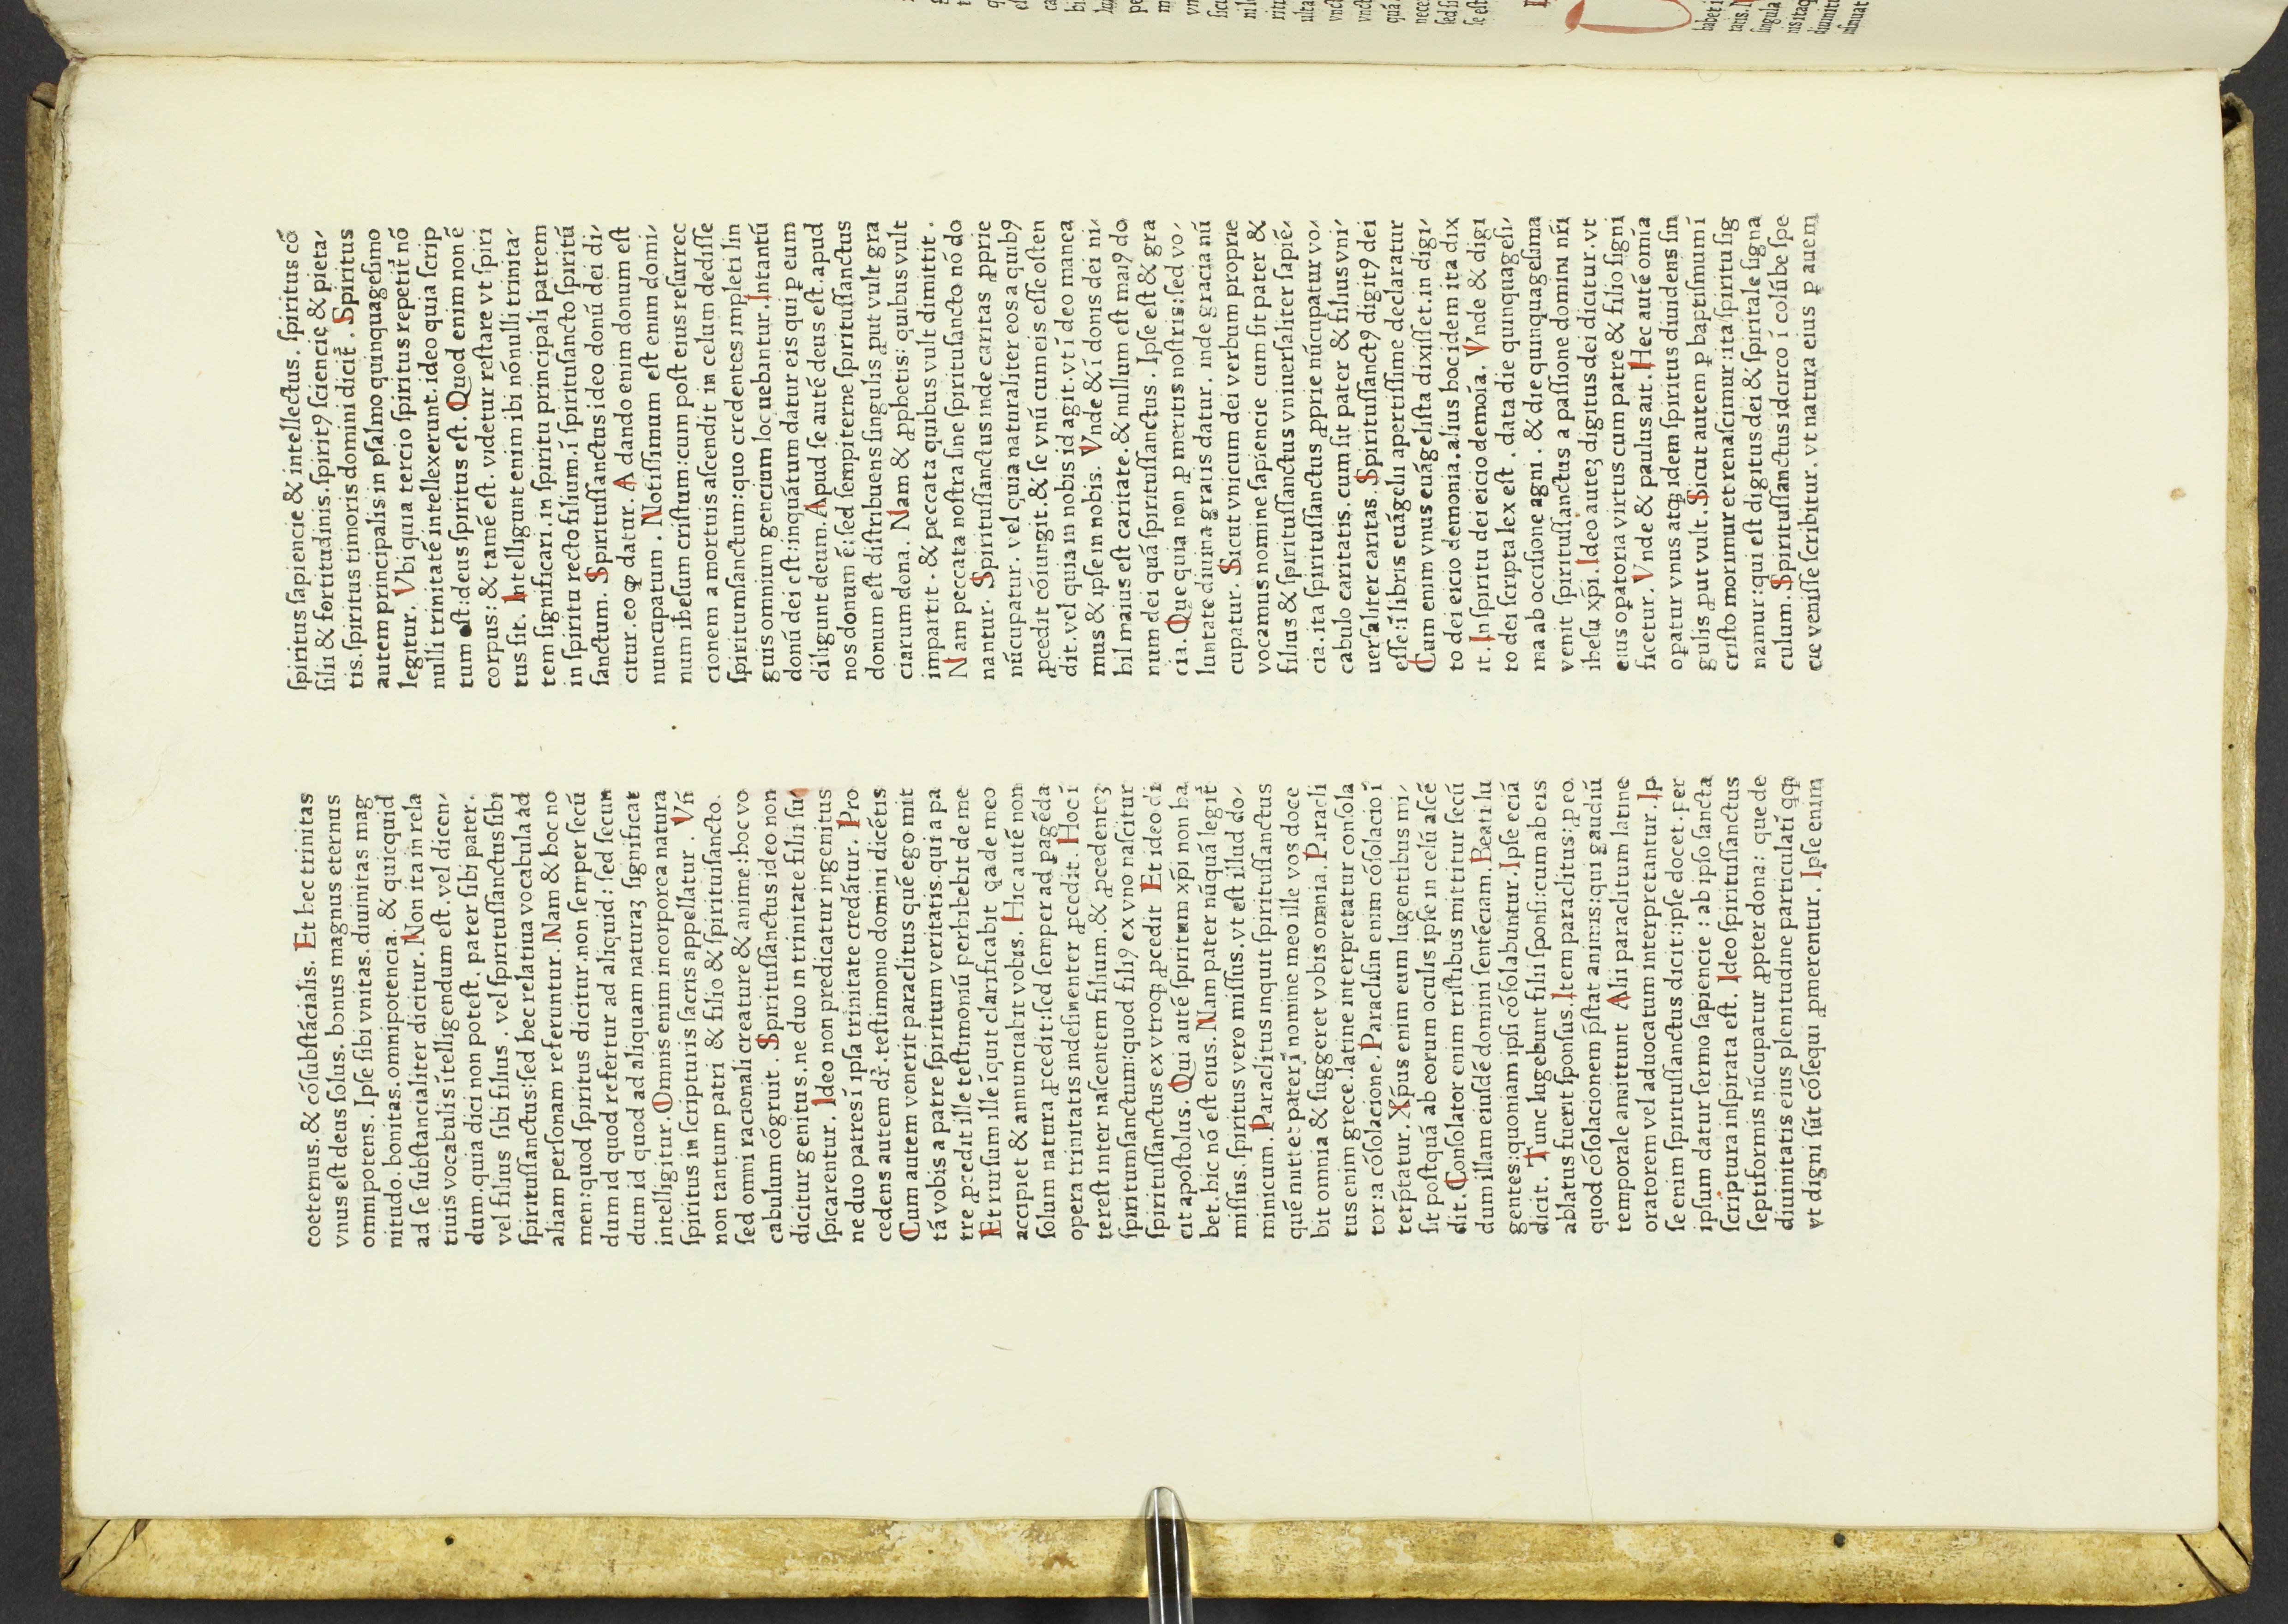 coeternus.& cóſubſtácialis. Et hec trinitas
vnus eſt deus ſolus. bonus magnus eternus
omnipotens. Ipſe ſibi vnitas.diuinitas mag
nitudo. bonitas.omnipotencia. & quicquid
ad ſe ſubſtancialiter dicitur. Non ita in rela
tiuis vocabulis ītelligendum eſt.vel dicen⸗
dum.quia dici non poteſt. pater ſibi pater.
vel filius ſibi filius . vel ſpirituſſanctus ſibi
ſpirituſſanctus:ſed hec relatiua vocabula ad
aliam perſonam referuntur. Nam & hoc no
men:quod ſpiritus dicitur.non ſemper ſecū
dum id quod refertur ad aliquid: ſed ſecun
dum id quod ad aliquam naturaꝫ ſignificat
intelligitur.Omnis enim incorporea natura
ſpiritus in ſcripturis ſacris appellatur . Vñ
non tantum patri & filio & ſpirituiſancto.
ſed omni racionali creature & anime:hoc vo
cabulum cógruit . Spirituſſanctus ideo non
dicitur genitus.ne duo in trinitate filii ſu⸗
ſpicarentur. Ideo non predicatur ingenitus
ne duo patres ī ipſa trinitate credátur. Pro
cedens autem dr̄.teſtimonio domini dicétis.
Cum autem venerit paraclitus quē ego mit
tá vobis a patre ſpiritum veritatis.qui a pa
tre ꝓcedit ille teſtimoniū perhibebit de me
Et rurſum ille īquit clarificabit qa de meo
accipiet & annunciabit vobis. Hic autē non
ſolum natura ꝓcedit:ſed ſemper ad pagēda
opera trinitatis indeſinenter ꝓcedit. Hoc ī
tereſt inter naſcentem filium.& ꝓcedenteꝫ
ſpiritumſanctum:quod filiꝰ ex vno naſcitur
ſpirituſſanctus ex vtroqꝫ ꝓcedit Et ideo di
cit apoſtolus. Qui autē ſpiritum xp̄i non ha
bet.hic nó eſt eius. Nam pater nūquá legit̄
miſſus.ſpiritus vero miſſus.vt eſt illud do⸗
minicum. Paraclitus inquit ſpirituſſanctus
quē mittet pater ī nomine meo ille vos doce
bit omnia & ſuggeret vobis omnia. Paracli
tus enim grece.latine interpretatur conſola
tor:a cóſolacione.Paracliſin enim cóſolacio ī
terp̄tatur. Xp̄us enim eum lugentibus mi⸗
ſit poſtquá ab eorum oculis ipſe in celū aſcē
dit. Conſolator enim triſtibus mittitur ſecū
dum illam eiuſdē domini ſentēciam.Beati lu
gentes:quoniam ipſi cóſolabuntur.Ipſe eciá
dicit. Tunc lugebunt filii ſponſi:cum ab eis
ablatus fuerit ſponſus.Item paraclitus:ꝓ eo
quod cóſolacionem p̄ſtat animis:qui gaudiū
temporale amittunt Alii paraclitum latine
oratorem vel aduocatum interpretantur.Ip
ſe enim ſpirituſſanctus dicit:ipſe docet.per
ipſum datur ſermo ſapiencie : ab ipſo ſancta
ſcriptura inſpirata eſt. Ideo ſpirituſſanctus
ſeptiformis nūcupatur ꝓpter dona: que de
diuinitatis eius plenitudine particulati qꝗꝫ
vt digni ſūt cóſequi ꝓmerentur. Ipſe enim
ſpiritus ſapiencie & intellectus. ſpiritus có
ſilii & fortitudinis.ſpiritꝰ ſciencie & pieta⸗
tis.ſpiritus timoris domini dicit̄ . Spiritus
autem principalis in pſalmo quinquageſimo
legitur. Vbi quia tercio ſpiritus repetit̄ nó
nulli trinitatē intellexerunt.ideo quia ſcrip
tum eſt:deus ſpiritus eſt. Quod enim non ē
corpus: & tamē eſt. videtur reſtare vt ſpiri
tus ſit. Intelligunt enim ibi nónulli trinita⸗
tem ſignificari.in ſpiritu principali patrem
in ſpiritu recto filium.ī ſpirituſancto ſpiritū
ſanctum. Spirituſſanctus ideo donū dei di⸗
citur.eo ꝙ datur. A dando enim donum eſt
nuncupatum . Notiſſimum eſt enim domi⸗
num iheſum criſtum:cum poſt eius reſurrec
cionem a mortuis aſcendit in celum dediſſe
ſpiritumſanctum:quo credentes impleti lin
guis omnium gencium loquebantur.Intantū
donū dei eſt:inquátum datur eis qui ꝑ eum
diligunt deum.Apud ſe autē deus eſt.apud
nos donum ē: ſed ſempiterne ſpirituſſanctus
donum eſt diſtribuens ſingulis ꝓut vult gra
ciarum dona. Nam & ꝓphetis: quibus vult
impartit . & peccata quibus vult dimittit .
Nam peccata noſtra ſine ſpirituſancto nó do
nantur. Spirituſſanctus inde caritas ꝓprie
nūcupatur. vel quia naturaliter eos a quibꝰ
ꝓcedit cóiungit.& ſe vnū cum eis eſſe oſten
dit.vel quia in nobis id agit.vt ī deo manea
mus & ipſe in nobis. Vnde & ī donis dei ni⸗
hil maius eſt caritate.& nullum eſt maiꝰ do
num dei quá ſpirituſſanctus . Ipſe eſt & gra
cia. Que quia non ꝑ meritis noſtris:ſed vo⸗
luntate diuina gratis datur. inde gracia nū
cupatur. Sicut vnicum dei verbum proprie
vocamus nomine ſapiencie cum ſit pater &
filius & ſpirituſſanctus vniuerſaliter ſapiē⸗
cia.ita ſpirituſſanctus ꝓprie nūcupatur vo⸗
cabulo caritatis.cum ſit pater & filius vni⸗
uerſaliter caritas. Spirituſſanctꝰ digitꝰ dei
eſſe:ī libris euágelii apertiſſime declaratur
Cum enim vnus euágeliſta dixiſſet.in digi⸗
to dei eicio demonia.alius hoc idem ita dix
it.In ſpiritu dei eicio demoīa. Vnde & digi
to dei ſcripta lex eſt . data die quinquageſi⸗
ma ab occiſione agni . & die quinquageſima
venit ſpirituſſanctus a paſſione domini nr̄i
iheſu xp̄i.Ideo auteꝫ digitus dei dicitur.vt
eius opatoria virtus cum patre & filio ſigni
ficetur. Vnde & paulus ait. Hec autē omīa
opatur vnus atqꝫ idem ſpiritus diuidens ſin
gulis ꝓut vult. Sicut autem ꝑ baptiſmum ī
criſto morimur et renaſcimur:ita ſpiritu ſig
namur:qui eſt digitus dei & ſpiritale ſigna
culum. Spirituſſanctus idcirco ī colūbe ſpe
cie veniſſe ſcribitur. vt natura eius ꝑ auem